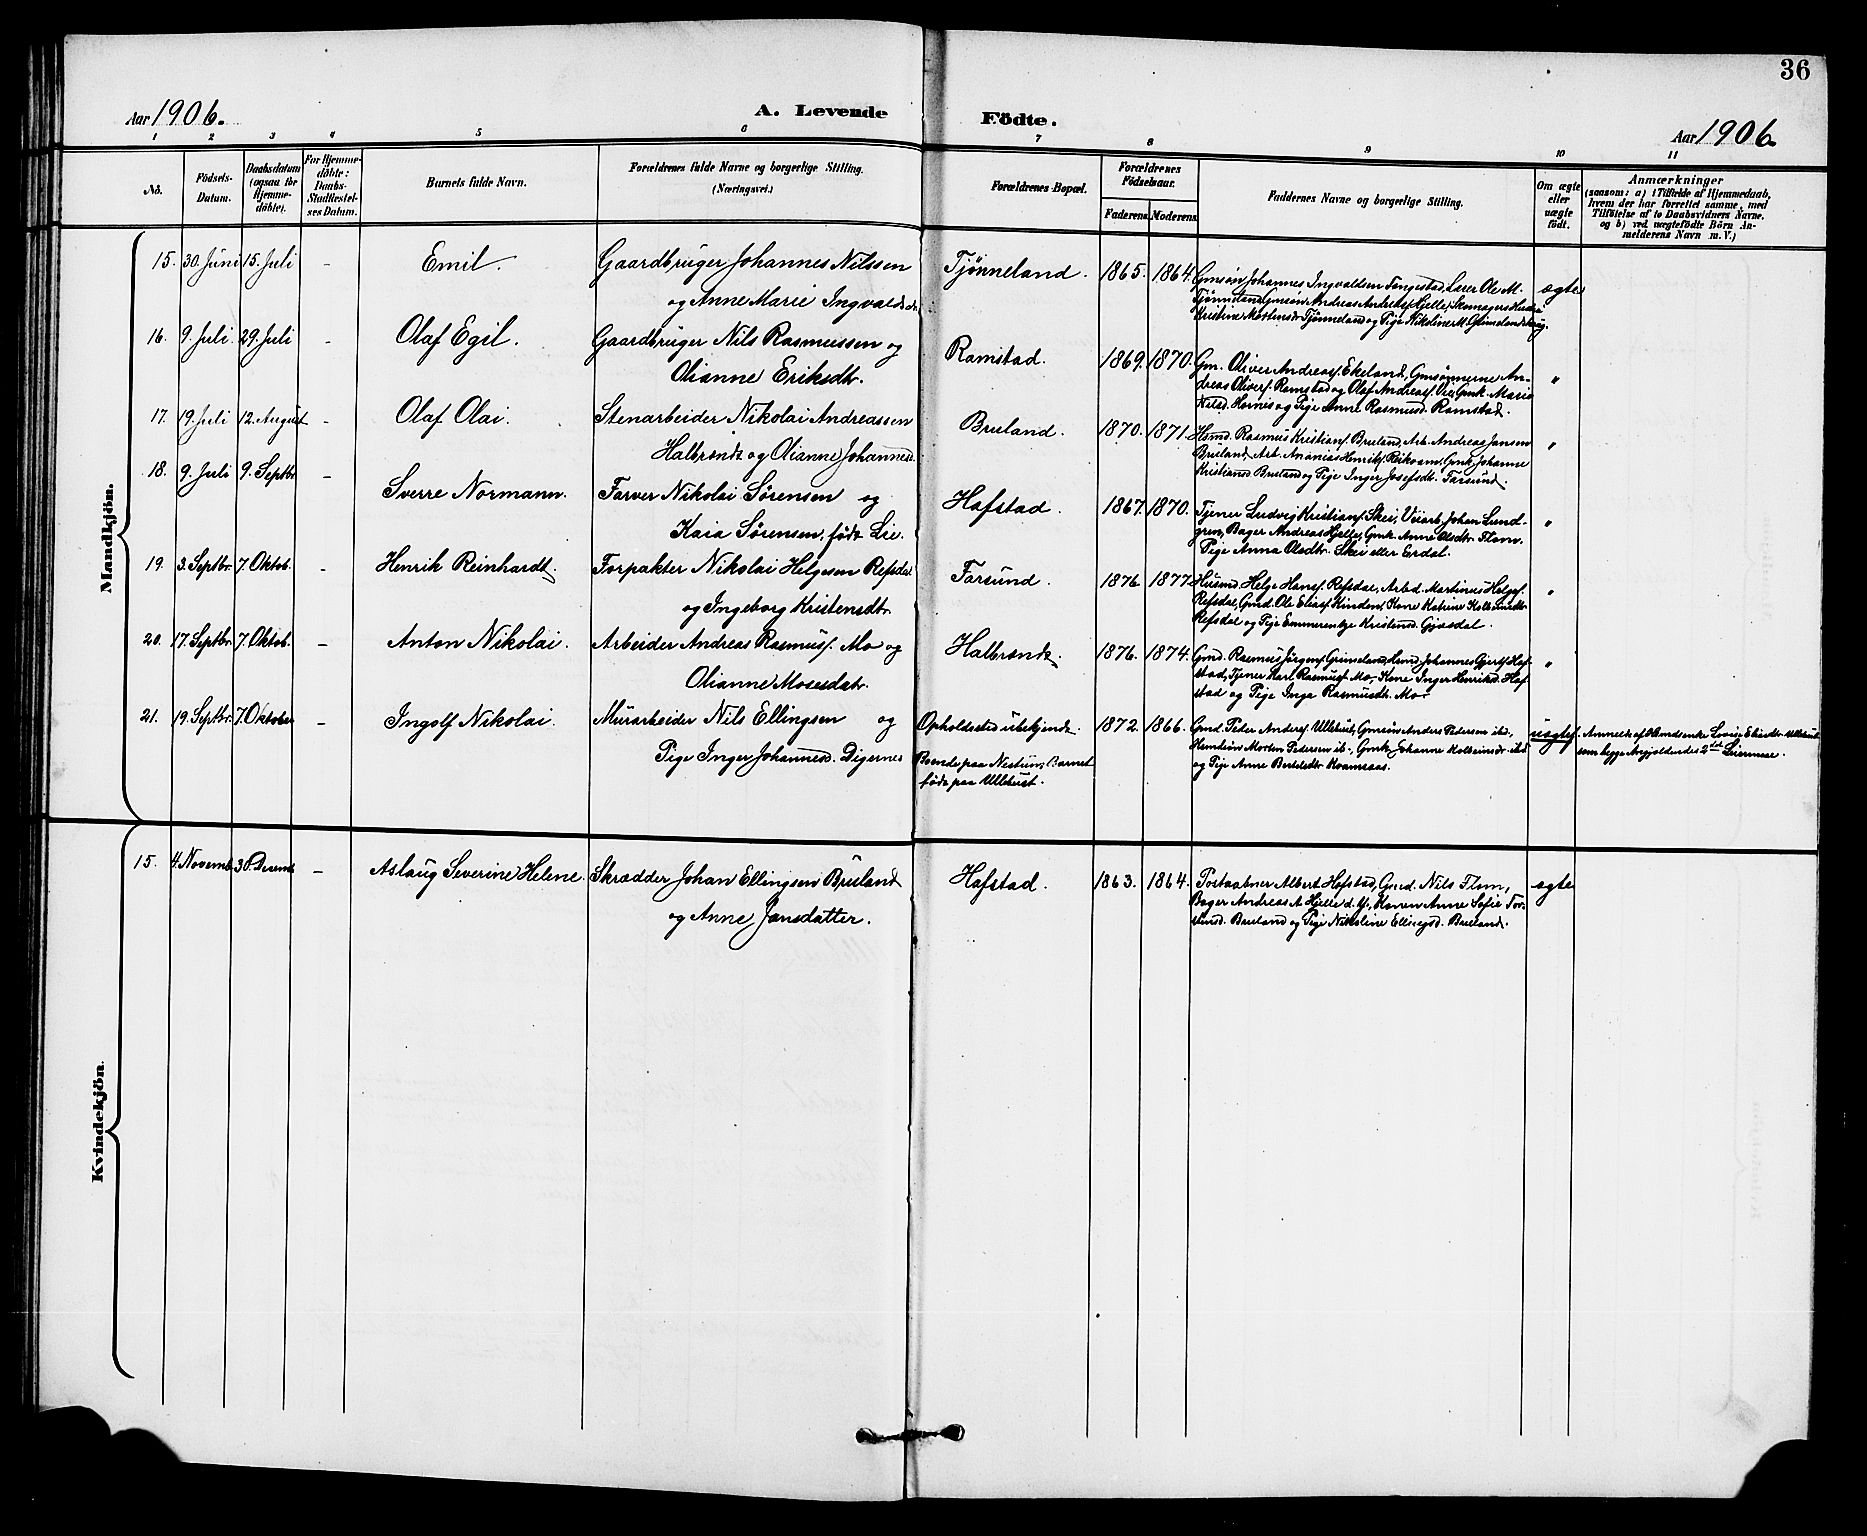 36
Aar 1906.
A. Levende
Födte.
Aar 1906
1 2 3 4 5 6 7 8 9 10 11
No. Födsels-Datum. Daabsdatum (ogsaa for Hjemme-döbte). For Hjemme-döbte: Daabs-Stadfæstel-ses Datum. Barnets fulde Navn. Forældrenes fulde Navne og borgerlige Stilling. (Næringsvei.) Forældrenes Bopæl. Forældrenes Födselsaar. Faderens Moderens Faddernes Navne og borgerlige Stilling. Om ægte eller uægte födt. Anmærkninger (saasom: a) i Tilfælde af Hjemmedaab, hvem der har forrettet samme, med Tilföielse af to Daabsvidners Navne. og b) ved uægtefödte Börn An-melderens Navn m. V.)
Mandkjön.
15. 30. Juni 15. Juli - Emil. Gaardbruger Johannes Nilssen
og Anne Marie Ingvaldsdr.
Tjønneland. 1865. 1864. Gmsøn Johannes Ingvaldsen Fengestad, Lærer Ole M.
Tjønneland, Gmsøn Andreas Hjelle,
Kristine Mortensdr Tjønneland og Pige
ægte
16. 9. Juli. 29. Juli - Olaf Egil. Gaardbruger Nils Rasmussen og
Olianne Eriksdtr.
Ramstad. 1869. 1870. Gm. Oliver Andreasf. Ekeland, Gmsønnerne An-
dreas Oliverf. Ramstad og Olaf Andreasf. Vie, Gmk. Marie
Nilsd. Hornis og Pige Anne Rasmusd. Ramstad.
"
17. 19. Juli 12. August - Olaf Olai. Stenarbeider Nikolai Andreassen
Halbrende og Olianne Johannesd.
Bruland. 1870. 1871. Husmd. Rasmus Kristianf. Bruland, Arb. Andreas Jansen
Bruland, Arb. Ananias Henrikf. Gmk. Johanne
Kristiansd Bruland og Pige Inger Josefsdt. Farsund.
"
18. 9. Juli 9. Septbr. - Sverre Normann. Farver Nikolai Sørensen og
Kaia Sørensen, født Lie.
Hafstad. 1867. 1870. Tjener Ludvig Kristianf. Skei, Veiarb. Johan Lund-
gren, Bager Andreas Hjelle, Gmk. Anne Olsdtr. Flom,
Pige Anna Olsdtr. Skei eller Erdal.
"
19. 3. Septbr. 7. Oktob. - Henrik Reinhardt. Forpakter Nikolai Helgesen Refsdal
og Ingeborg Kristensdtr.
Farsund. 1876. 1877. Husmd. Helge Hansf. Refsdal, Arbd. Martinus Helgef.
Refsdal, Gmd. Ole Eliasf. Kinden, Kone Katrine
Refsdal og Pige Emmerentze Kristensd. Gjesdal.
"
20. 17. Septbr. 7. Oktob. - Anton Nikolai. Arbeider Andreas Rasmusf. Mo og
Olianne Mosesdatr.
Halbrende. 1876. 1874. Gmd. Rasmus Jørgenf. Grimeland, Husmd Johannes Gjertf. Haf-
stad, Tjener Karl Rasmusf. Mo, Kone Inger Henriksd. Haf-
stad og Pige Inga Rasmusdtr. Mo-
"
21. 19. Septbr. 7. Oktober - Ingolf Nikolai. Murarbeider Nils Ellingsen og
Pige Inger Johannesd. Digernes
Opholdssted ubekjendt.
Boende paa Nestun; Barnet
født paa Ullehust.
1872. 1866. Gmd. Peder Andersf. Ullehust, Gmsøn Anders Pedersen ibd.,
Morten Pedersen ib-, Gmk. Johanne ibd
og Pige Anne Bertelsdtr.
uægtef. Anmeldt af Lovise Eliasdr Ullehust
som begge Angjældendes 2det Leiermaal.
Kvindekjön.
15. 4. Novemb. 30. Decemb. - Aslaug Severine Helene. Skrædder Johan Ellingsen Bruland
og Anne Jansdatter.
Hafstad. 1863. 1864. Postaabner Albert Hafstad, Gmd. Nils Flom,
Bager Andreas A Hjelle d. y., Konen Anne Sofie Tor-
Bruland og Pige Nikoline Ellingsd. Bruland.
ægte